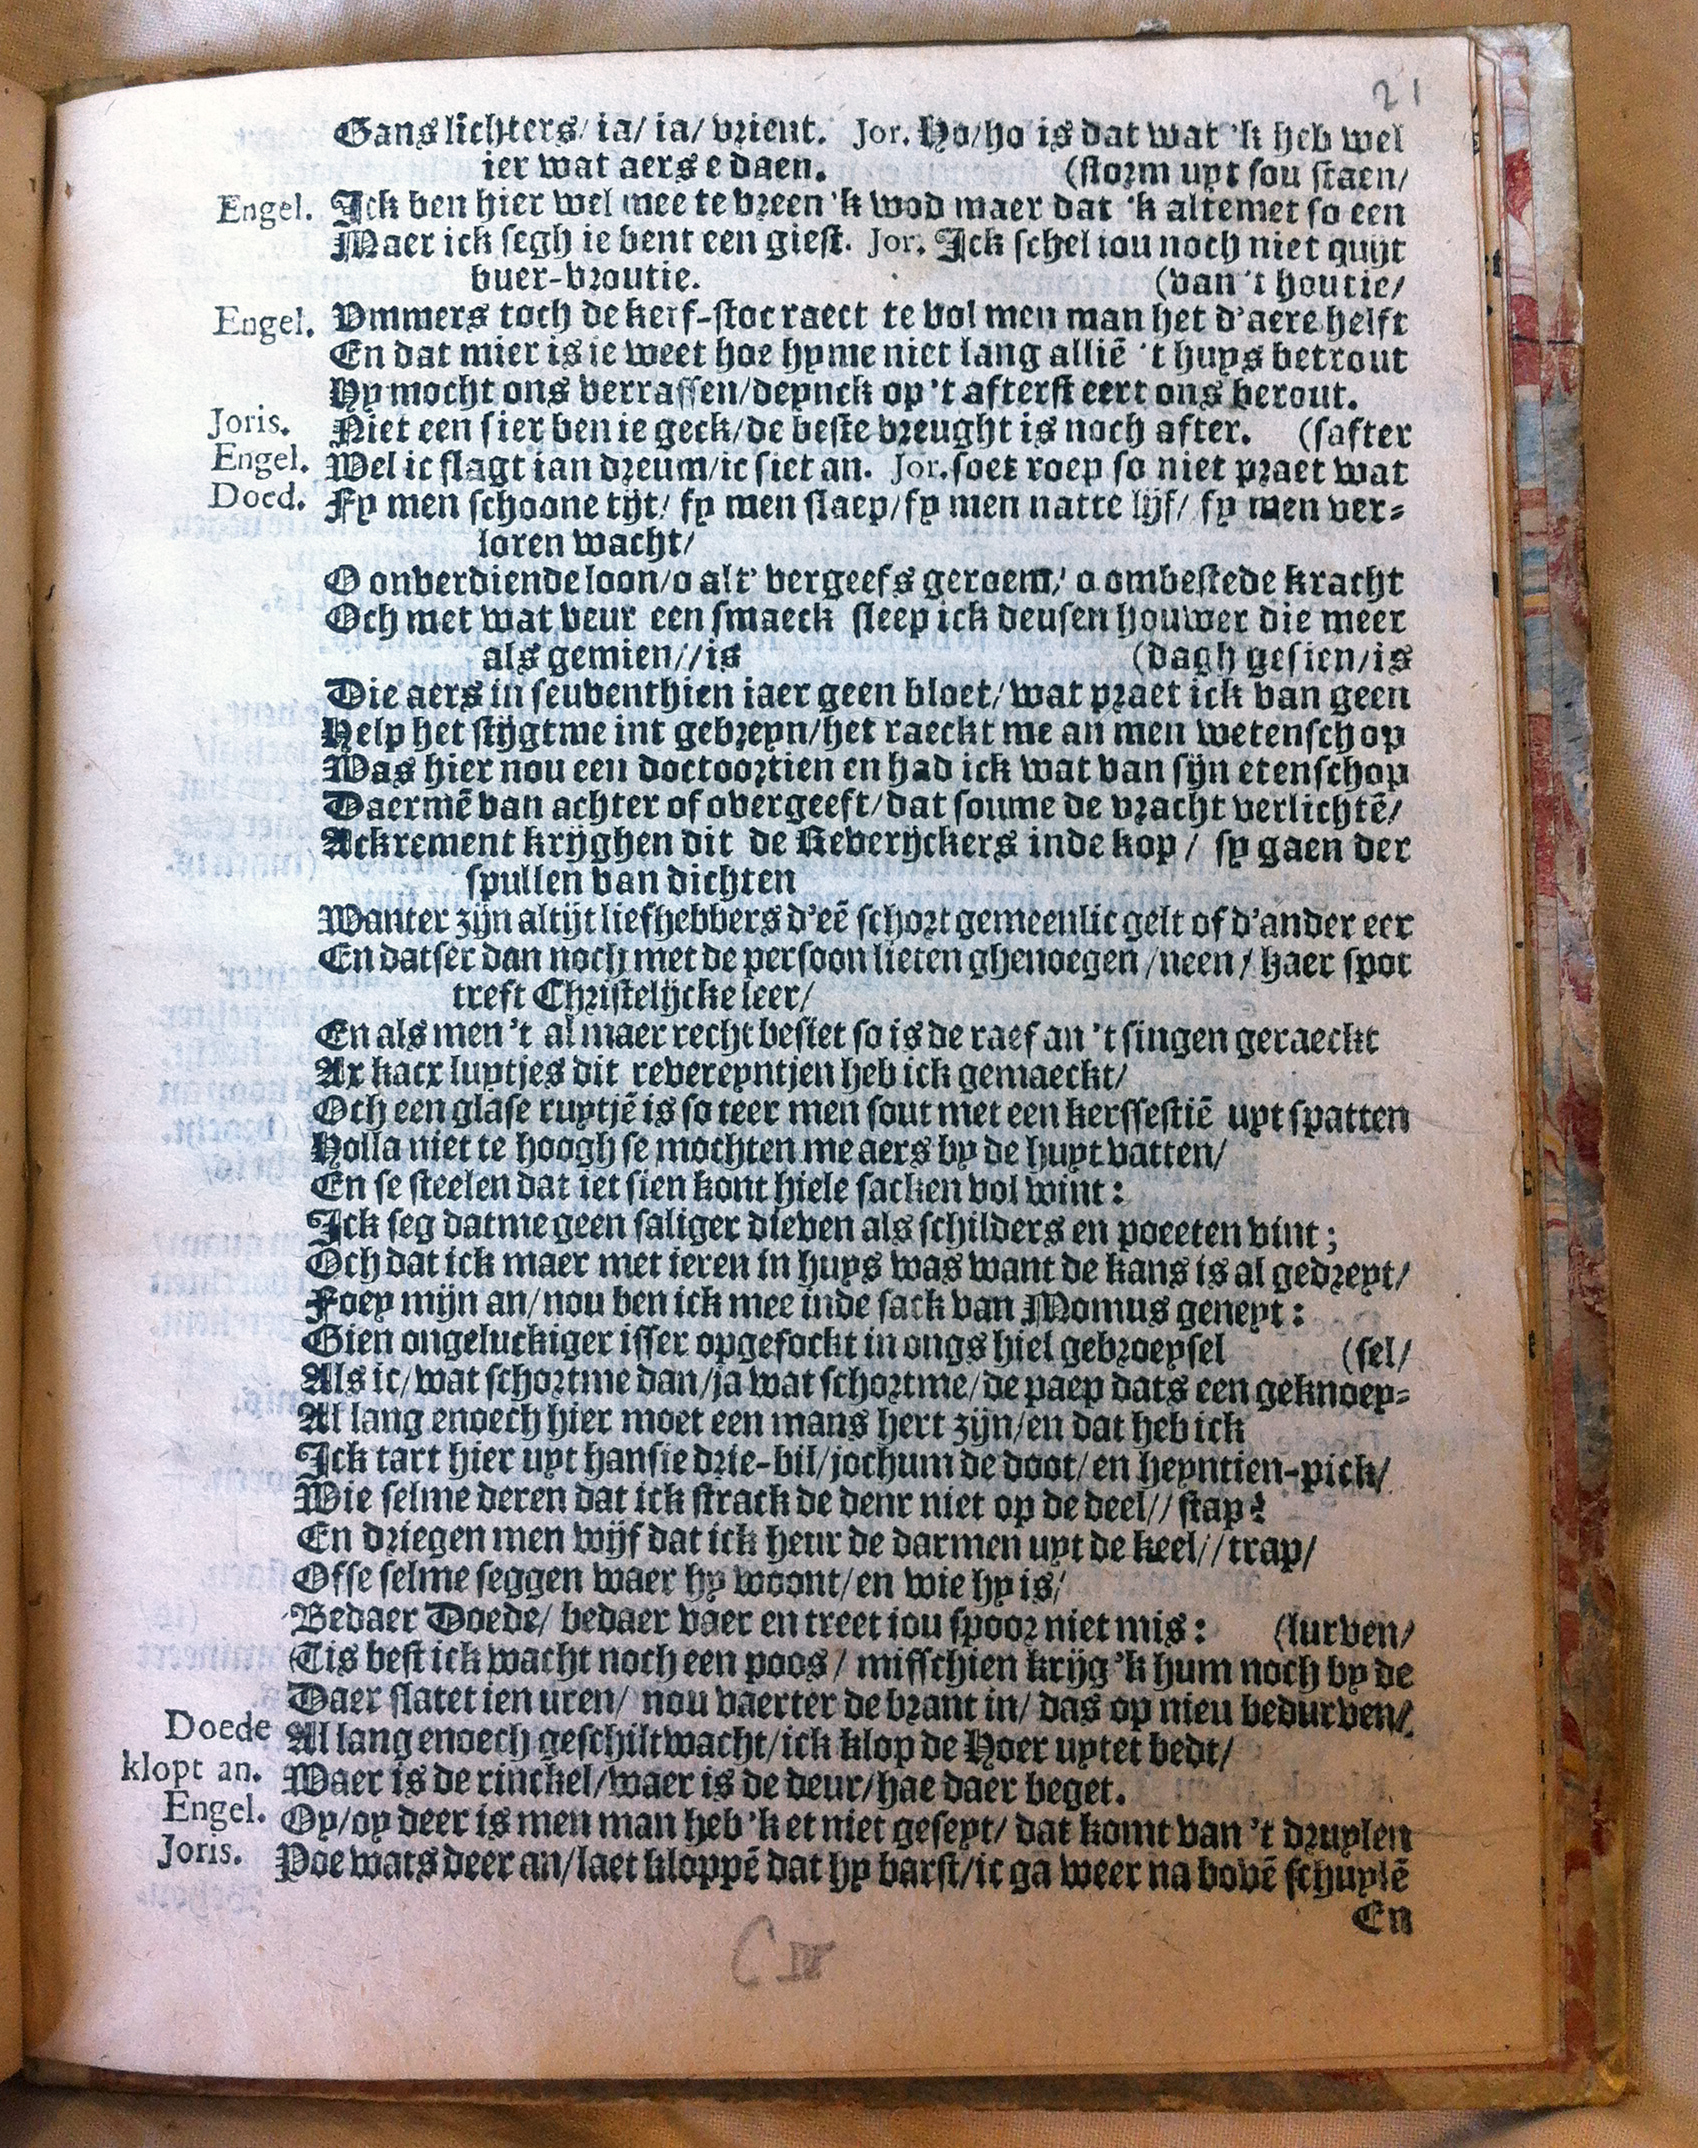 21
Gans lichters/ ia/ ia/ vrient. Jor. Ho/ho is dat wat 'k heb wel
ier wat aers e daen. (storm uyt sou staen/
Engel. Ick ben hier wel mee te vreen 'k wod maer dat 'k altemet so een
Maer ick segh ie bent een giest. Jor. Ick schel iou noch niet quyt
buer-vroutie. (van 't houtie/
Engel. Ymmers toch de kerf-stoc raect te vol men man het d'aere helft
En dat mier is ie weet hoe hyme niet lang alliē 't huys betrout
Hy mocht ons verrassen/deynck op 't afterst eert ons berout.
Joris. Niet een sier ben ie geck/de beste vreught is noch after. (safter
Engel. Wel ic slagt ian dreum/ic siet an. Jor. soet roep so niet praet wat
Doed. Fy men schoone tijt/ fy men slaep/fy men natte lijf/ fy men ver-
loren wacht/
O onverdiende loon/o alt' vergeefs geroem/ o ombestede kracht
Och met wat veur een smaeck sleep ick deusen houwer die meer
als gemien//is (dagh gesien/is
Die aers in seuventhien iaer geen bloet/ wat praet ick van geen
Help het stijgtme int gebreyn/het raeckt me an men wetenschop
Was hier nou een doctoortien en had ick wat van sijn etenschop
Daermē van achter of overgeeft/dat soume de vracht verlichtē/
Ackrement krijghen dit de Reverijckers inde kop/ sy gaen der
spullen van dichten
Wanter zijn altijt liefhebbers d'eē schort gemeenlic gelt of d'ander eer
En datser dan noch met de persoon lieten ghenoegen/neen/ haer spot
treft Christelijcke leer/
En als men 't al maer recht besiet so is de raef an 't singen geraeckt
Ar karr luytjes dit revereyntjen heb ick gemaeckt/
Och een glase ruytjē is so teer men sout met een kerssestiē uyt spatten
Holla niet te hoogh se mochten me aers by de huyt vatten/
En se steelen dat iet sien kont hiele sacken vol wint:
Ick seg datme geen saliger dieven als schilders en poeeten vint;
Och dat ick maer met ieren in huys was want de kans is al gedreyt/
Foey mijn an/nou ben ick mee inde sack van Momus geneyt:
Gien ongeluckiger isser opgefockt in ongs hiel gebroeysel (sel/
Als ic/wat schortme dan/ja wat schortme/de paep dats een geknoey-
Al lang enoech hier moet een mans hert zijn/en dat heb ick
Ick tart hier uyt hansie drie-bil/jochum de doot/en heyntien-pick/
Wie selme deren dat ick strack de denr niet op de deel// stap?
En driegen men wijf dat ick heur de darmen uyt de keel//trap/
Ofse selme seggen waer hy woont/en wie hy is/
Bedaer Doede/ bedaer vaer en treet iou spoor niet mis: (lurven/
Tis best ick wacht noch een poos/ misschien krijg 'k hum noch by de
Daer slatet ien uren/ nou vaerter de brant in/ das op nieu bedurven/.
Doede Al lang enoech geschiltwacht/ick klop de Hoer uytet bedt/
klopt an. Waer is de rinckel/waer is de deur/hae daer beget.
Engel. Oy/oy deer is men man heb 'k et niet geseyt/ dat komt van 't druylen
Joris. Poe wats deer an/laet kloppē dat hy barst/ic ga weer na bovē schuylē
En
C IV